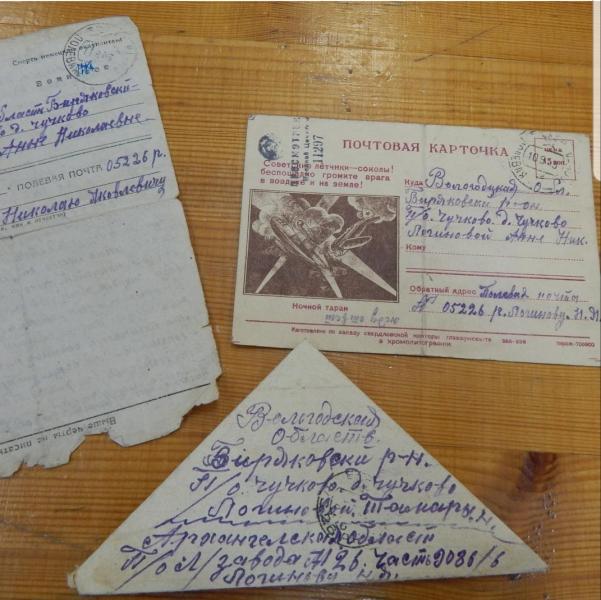 Смерть немецким оккупантам
Воинское
область Биряковски-
д. Чучково
Анне Николаевне
ПОЛЕВАЯ ПОЧТА 05226 р.
Николаю Яковлевичу
Выше черты не писать
11297
ПОЧТОВАЯ КАРТОЧКА
Советские летчики—соколы!
беспощадно громите врага
в воздухе и на земле!
Ночной таран
Куда Вологодцкая о-л.
Биряковски р-он
п/о. Чучково. д. Чучково
Логиновой Анне Ник.
Кому
Обратный адрес Полевая почта
№ 05226 р. Логинову. Н. Я.
в хромолитографии
Вологодской
область.
Биряковски р-н.
П/о. Чучково. д. Чучково
Логиновой Тамары. Н.
Архангелской област
П/о Л/завода №26. часть
Логинова